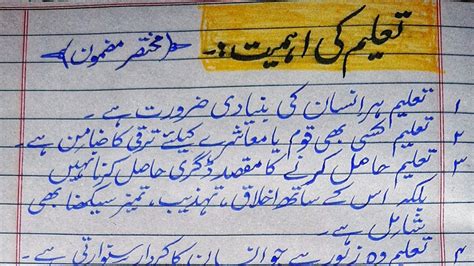 تعلیم کی اہمیت :۔ ﴿مختصر مضمون﴾
۱ تعلیم ہر انسان کی بنیادی ضرورت ہے ۔
۲ تعلیم کسی بھی قوم یا معاشرے کیلئے ترقی کا ضامن ہے۔
۳ تعلیم حاصل کرنے کا مقصد ڈگری حاصل کرنا نہیں
بلکہ اس کے ساتھ اخلاق، تہذیب، تمیز سیکھنا بھی
شامل ہے۔
۴ تعلیم وہ زیور ہے جو انسان کا کردار سنوارتی ہے ۔